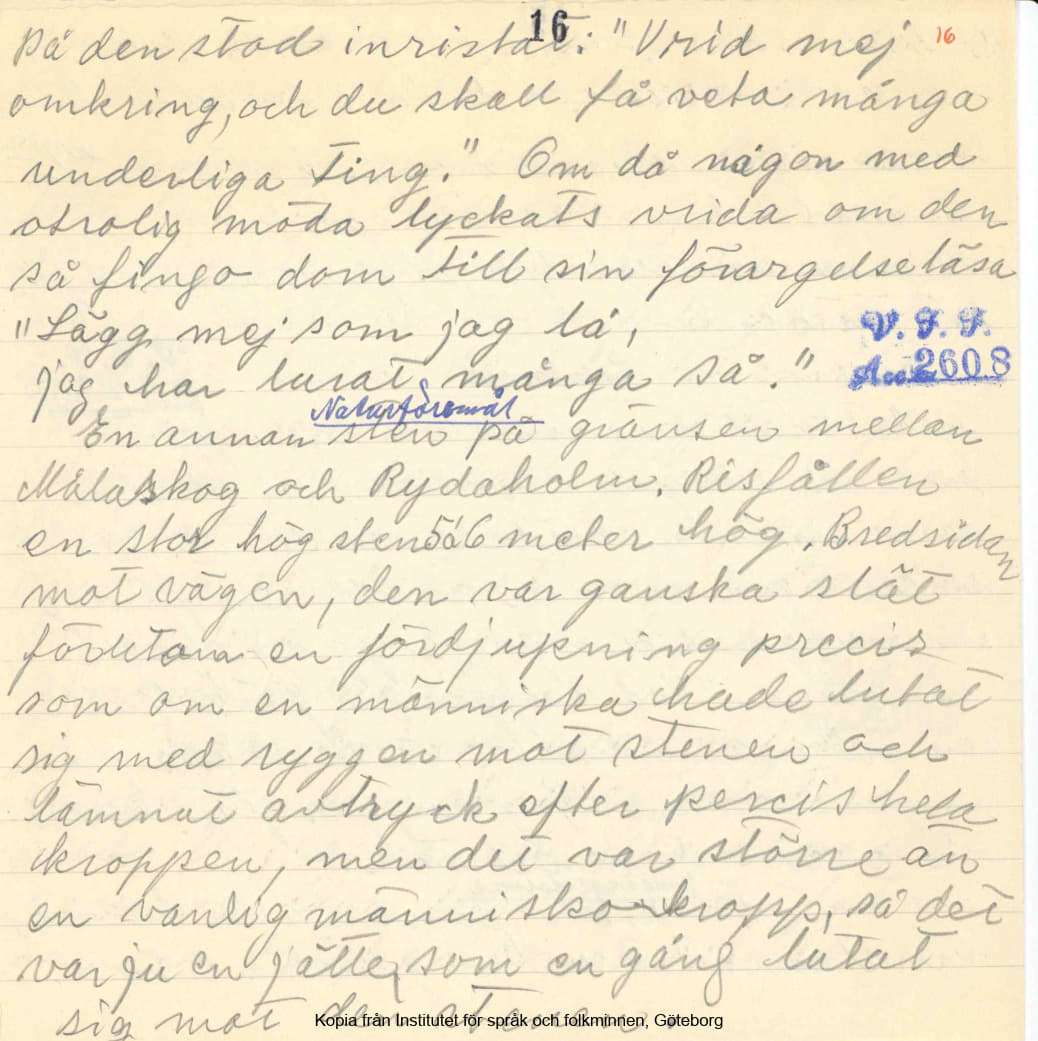 16
16
på den stod inristat: "Vrid mej
omkring, och du skall få veta många
underliga ting." Om då någon med
otrolig möda lyckats vrida om den
så fingo dom till sin förargelse läsa
"Lägg mej som jag lå,
jag har lurat många så."
V. F. F.
Acc. 2608
Naturföremål
En annan sten på gränsen mellan
Målaskog och Rydaholm. Risfällen
en stor hög sten 5à6 meter hög. Bredsidan
mot vägen, den var ganska slät
förutom en fördjupning precis
som om en människa hade lutat
sig med ryggen mot stenen och
lämnat avtryck efter percis hela
kroppen, men det var större än
en vanlig människo-kropp, så det
var ju en jätte, som en gång lutat
sig mot den stenen.
Kopia från Institutet för språk och folkminnen, Göteborg